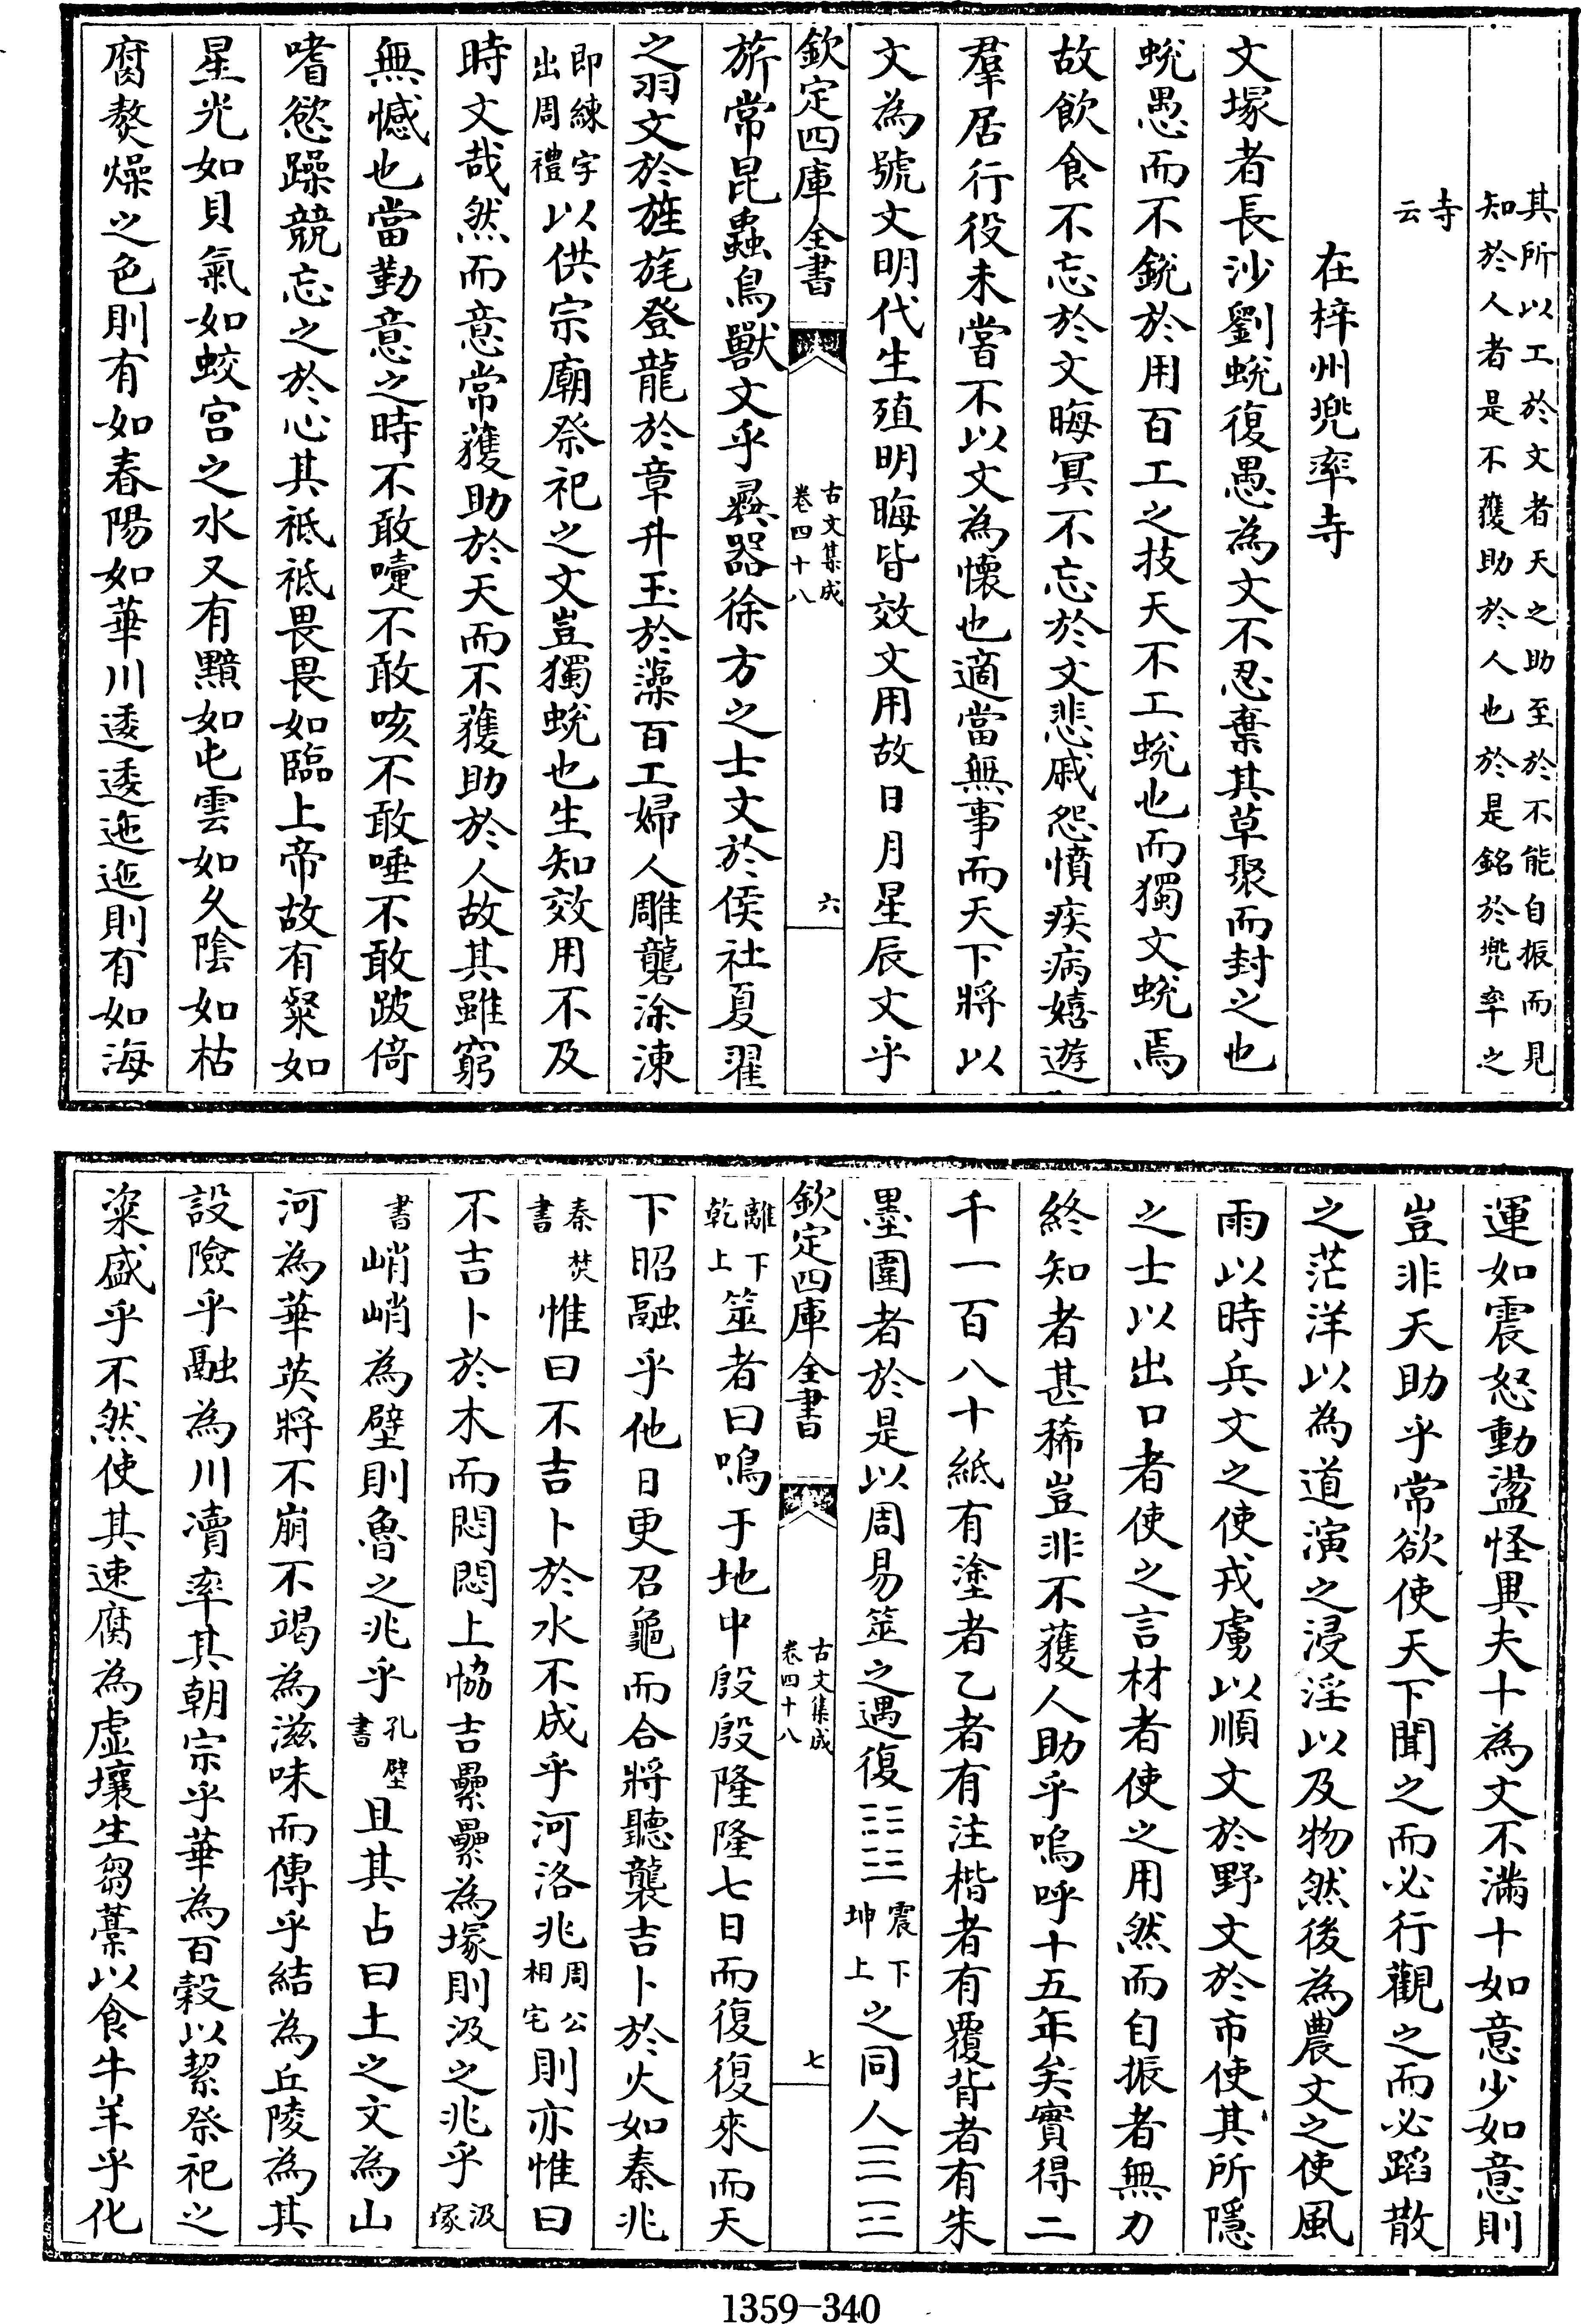 其所以工於文者天之助至於不能自振而見
知於人者是不獲助於人也於是銘於兠率之
寺
云
在梓州兠率寺
文塚者長沙劉蛻復愚為文不忍棄其草聚而封之也
蛻愚而不銳於用百工之技天不工蛻也而獨文蛻焉
故飲食不忘於文晦冥不忘於文悲戚怨憤疾病嬉遊
羣居行役未嘗不以文為懷也適當無事而天下將以
文為號文明代生殖明晦皆效文用故日月星辰文乎
欽定四庫全書
古文集成
卷四十八
六
旂常昆蟲鳥獸文乎彛器徐方之士文於侯社夏翟
之羽文於旌旄登龍於章升玉於藻百工婦人雕礱涂涷
即練字
出周禮
以供宗廟祭祀之文豈獨蛻也生知效用不及
時文哉然而意常獲助於天而不獲助於人故其雖窮
無憾也當勤意之時不敢嚏不敢咳不敢唾不敢跛倚
嗜慾躁競忘之於心其祗祗畏畏如臨上帝故有粲如
星光如貝氣如蛟宫之水又有黯如屯雲如久陰如枯
腐熬燥之色則有如春陽如華川逶逶迤迤則有如海
運如震怒動盪怪異夫十為文不滿十如意少如意則
豈非天助乎常欲使天下聞之而必行觀之而必蹈散
之茫洋以為道演之浸淫以及物然後為農文之使風
雨以時兵文之使戎虜以順文於野文於市使其所隱
之士以出口者使之言材者使之用然而自振者無力
終知者甚稀豈非不獲人助乎嗚呼十五年矣實得二
千一百八十紙有塗者乙者有注楷者有覆背者有朱
墨圍者於是以周易筮之遇復䷗
震下
坤上
之同人䷌
欽定四庫全書
古文集成
卷四十八
七
離下
乾上
筮者曰鳴于地中殷殷隆隆七日而復復來而天
下昭融乎他日更召龜而合將聽襲吉卜於火如秦兆
秦焚
書
惟曰不吉卜於水不成乎河洛兆
周公
相宅
則亦惟曰
不吉卜於木而悶悶上恊吉纍纍為塚則汲之兆乎
汲
塚
書
峭峭為壁則魯之兆乎
孔壁
書
且其占曰土之文為山
河為華英將不崩不竭為滋味而傳乎結為丘陵為其
設險乎融為川瀆率其朝宗乎華為百榖以絜祭祀之
粢盛乎不然使其速腐為虛壤生芻藁以食牛羊乎化
1359-340